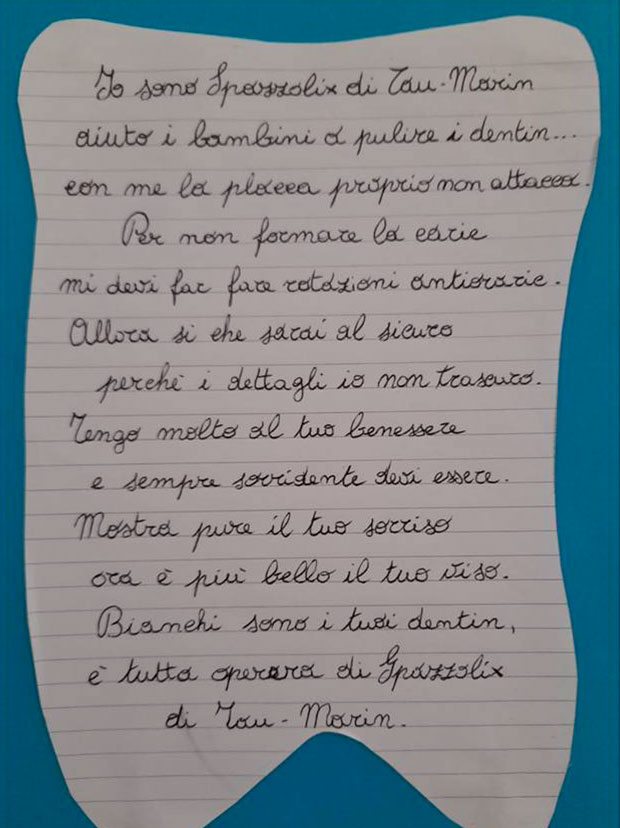 Io sono Spazzolix di Tau-Marin
aiuto i bambini a pulire i dentin...
con me la placca proprio non attacca.
Per non formare la carie
mi devi far fare rotazioni antiorarie.
Allora si che sarai al sicuro
perchè i dettagli io non trascuro.
Tengo molto al tuo benessere
e sempre sorridente devi essere.
Mostra pure il tuo sorriso
ora è più bello il tuo viso.
Bianchi sono i tuoi dentin,
è tutta operara di Spazzolix
di Tau-Marin.